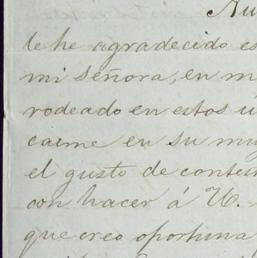 Au
le he agradecido es
mi señora, en m
rodeado en estos u
carme en su mu
el gusto de contes
con hacer á U.
que creo oportuna